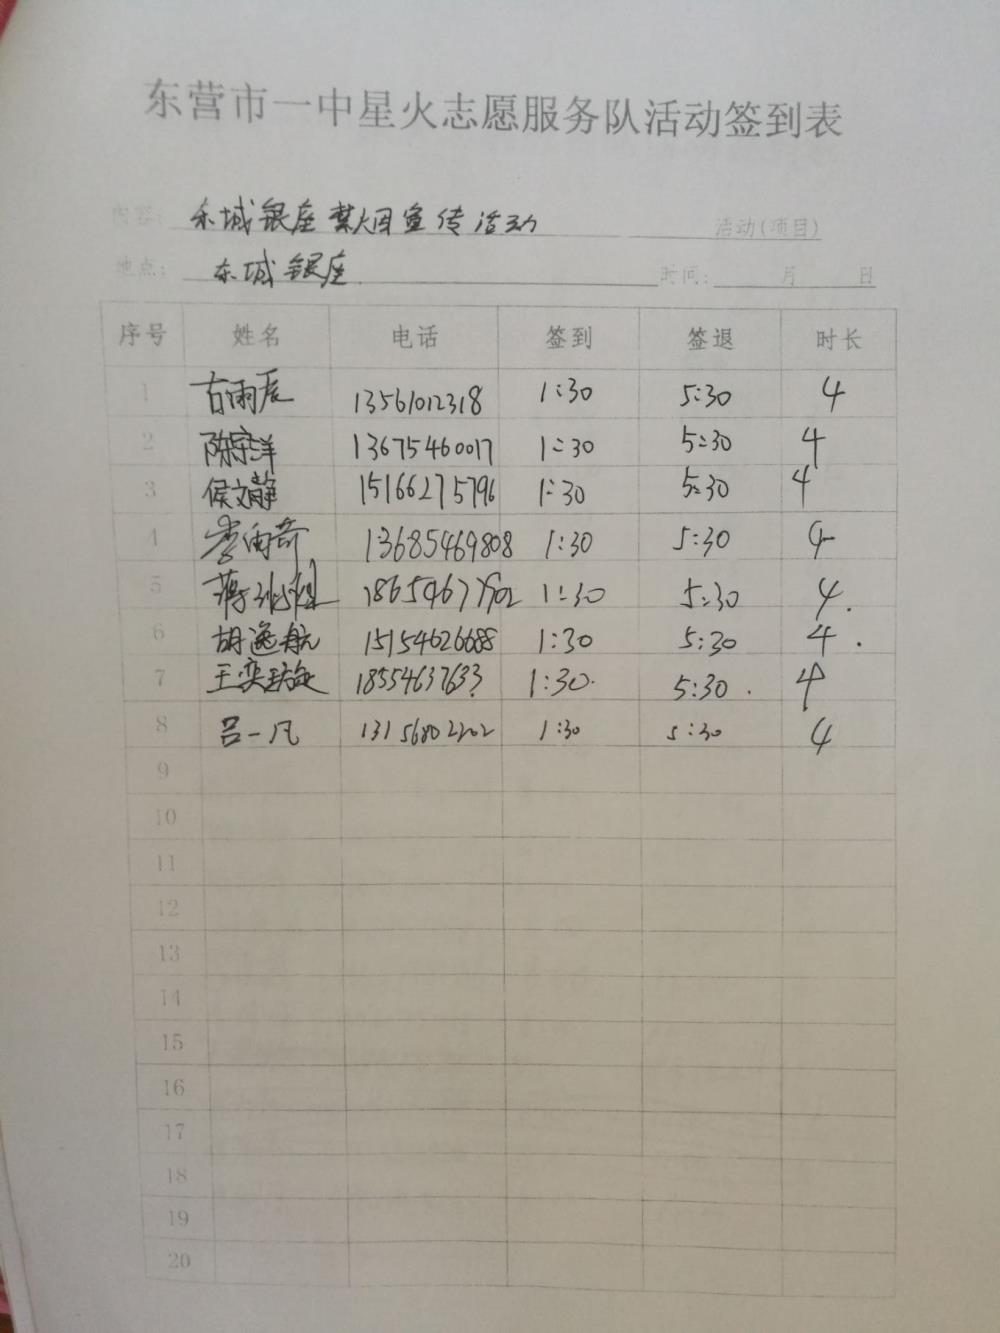 东营市一中星火志愿服务队活动签到表
内容: 东城银座禁烟宣传活动 活动(项目)
地点: 东城银座 时间: 月 日
序号 姓名 电话 签到 签退 时长
1 古雨辰 13561012318 1:30 5:30 4
2 陈宇洋 13675460017 1:30 5:30 4
3 侯文静 15166275796 1:30 5:30 4
4 李雨奇 13685469808 1:30 5:30 4
5 1:30 5:30 4.
6 胡逸航 15154626688 1:30 5:30 4.
7 王奕璇 18554637633 1:30. 5:30. 4
8 吕一凡 13156802202 1:30 5:30 4
9
10
11
12
13
14
15
16
17
18
19
20